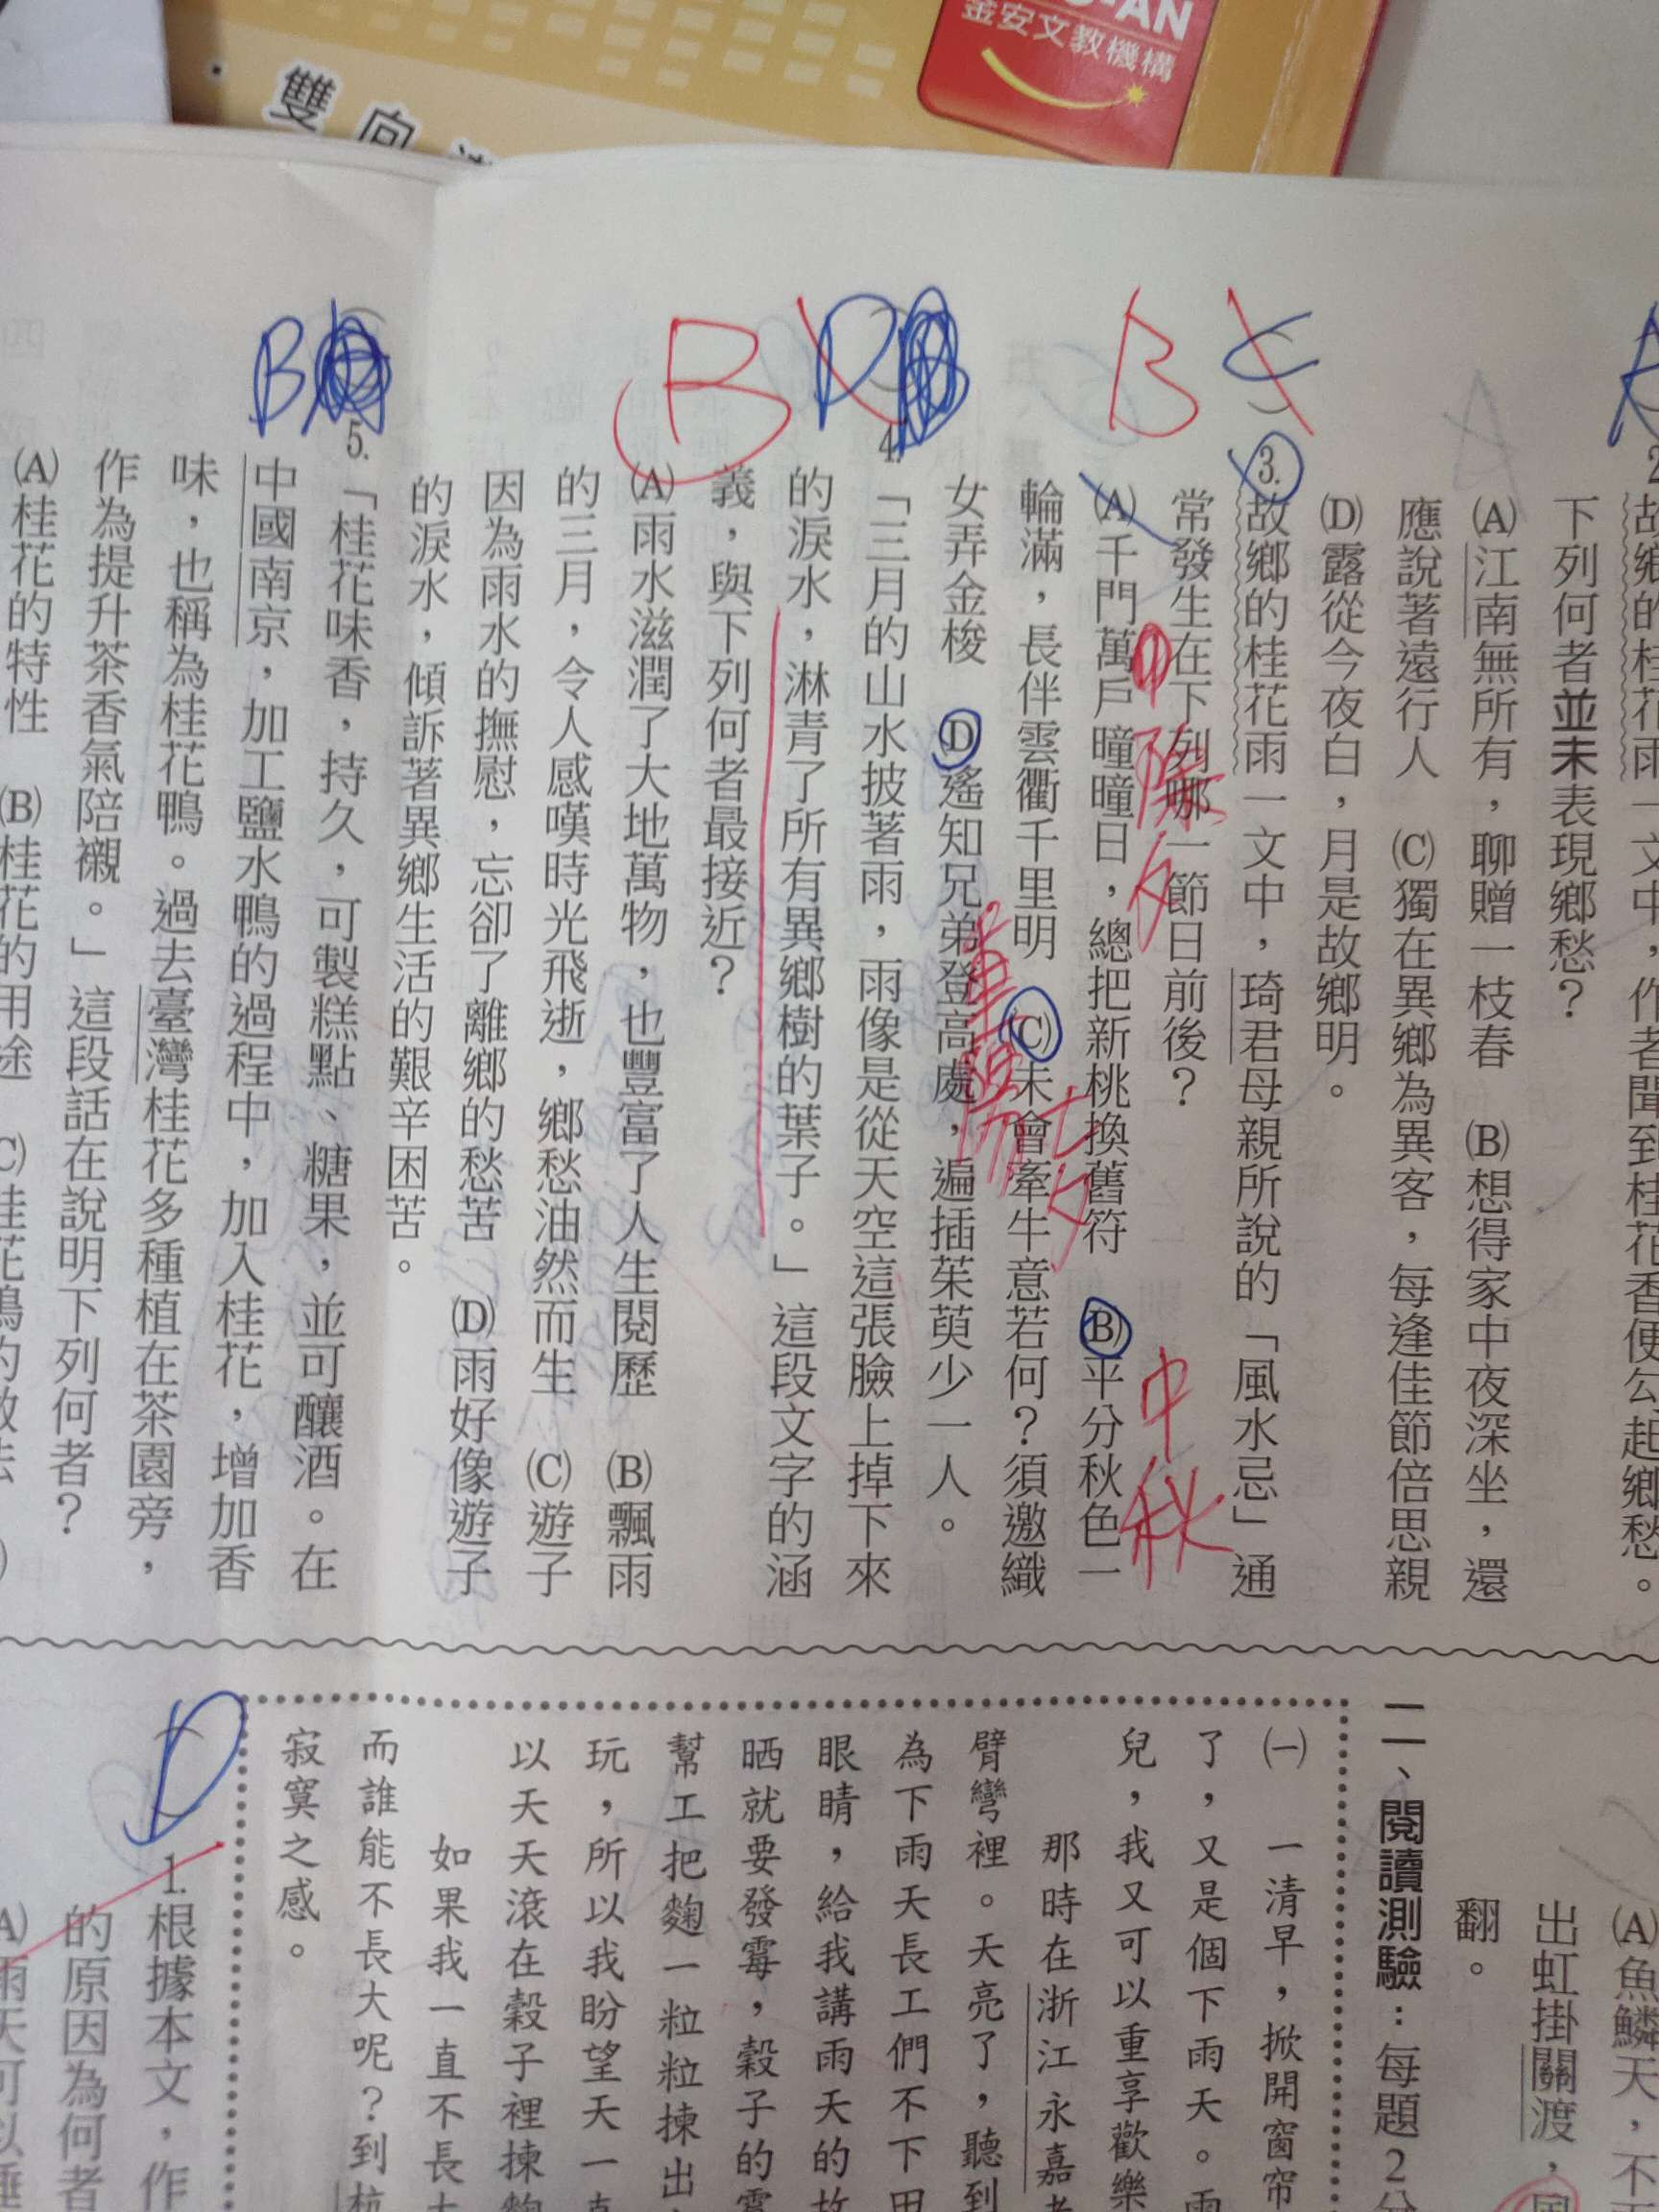 金安文教機構
雙向
故鄉的桂花雨一文中，作者聞到桂花香便勾起鄉愁。
下列何者並未表現鄉愁？
(A)江南無所有，聊贈一枝春　(B)想得家中夜深坐，還
應說著遠行人　(C)獨在異鄉為異客，每逢佳節倍思親
(D)露從今夜白，月是故鄉明。
B C
3.故鄉的桂花雨一文中，琦君母親所說的「風水忌」通
常發生在下列哪一節日前後？
(A)千門萬戶曈曈日，總把新桃換舊符　(B)平分秋色一
中秋
輪滿，長伴雲衢千里明　(C)未會牽牛意若何？須邀織
七夕
女弄金梭　(D)遙知兄弟登高處，遍插茱萸少一人。
重陽
B D
4.「三月的山水披著雨，雨像是從天空這張臉上掉下來
的淚水，淋青了所有異鄉樹的葉子。」這段文字的涵
義，與下列何者最接近？
(A)雨水滋潤了大地萬物，也豐富了人生閱歷　(B)飄雨
的三月，令人感嘆時光飛逝，鄉愁油然而生　(C)遊子
因為雨水的撫慰，忘卻了離鄉的愁苦　(D)雨好像遊子
的淚水，傾訴著異鄉生活的艱辛困苦。
B
5.「桂花味香，持久，可製糕點、糖果，並可釀酒。在
中國南京，加工鹽水鴨的過程中，加入桂花，增加香
味，也稱為桂花鴨。過去臺灣桂花多種植在茶園旁，
作為提升茶香氣陪襯。」這段話在說明下列何者？
(A)桂花的特性　(B)桂花的用途
(A)魚鱗天，不
出虹掛關渡，
翻。
二、閱讀測驗：每題2分
㈠　一清早，掀開窗帘
了，又是個下雨天。雨
兒，我又可以重享歡樂
那時在浙江永嘉老
臂彎裡。天亮了，聽到
為下雨天長工們不下田
眼睛，給我講雨天的故
晒就要發霉，穀子的霉
幫工把麴一粒粒揀出
玩，所以我盼望天一直
以天天滾在穀子裡揀麴
如果我一直不長大
而誰能不長大呢？到杭
寂寞之感。
D
1.根據本文，作
的原因為何者